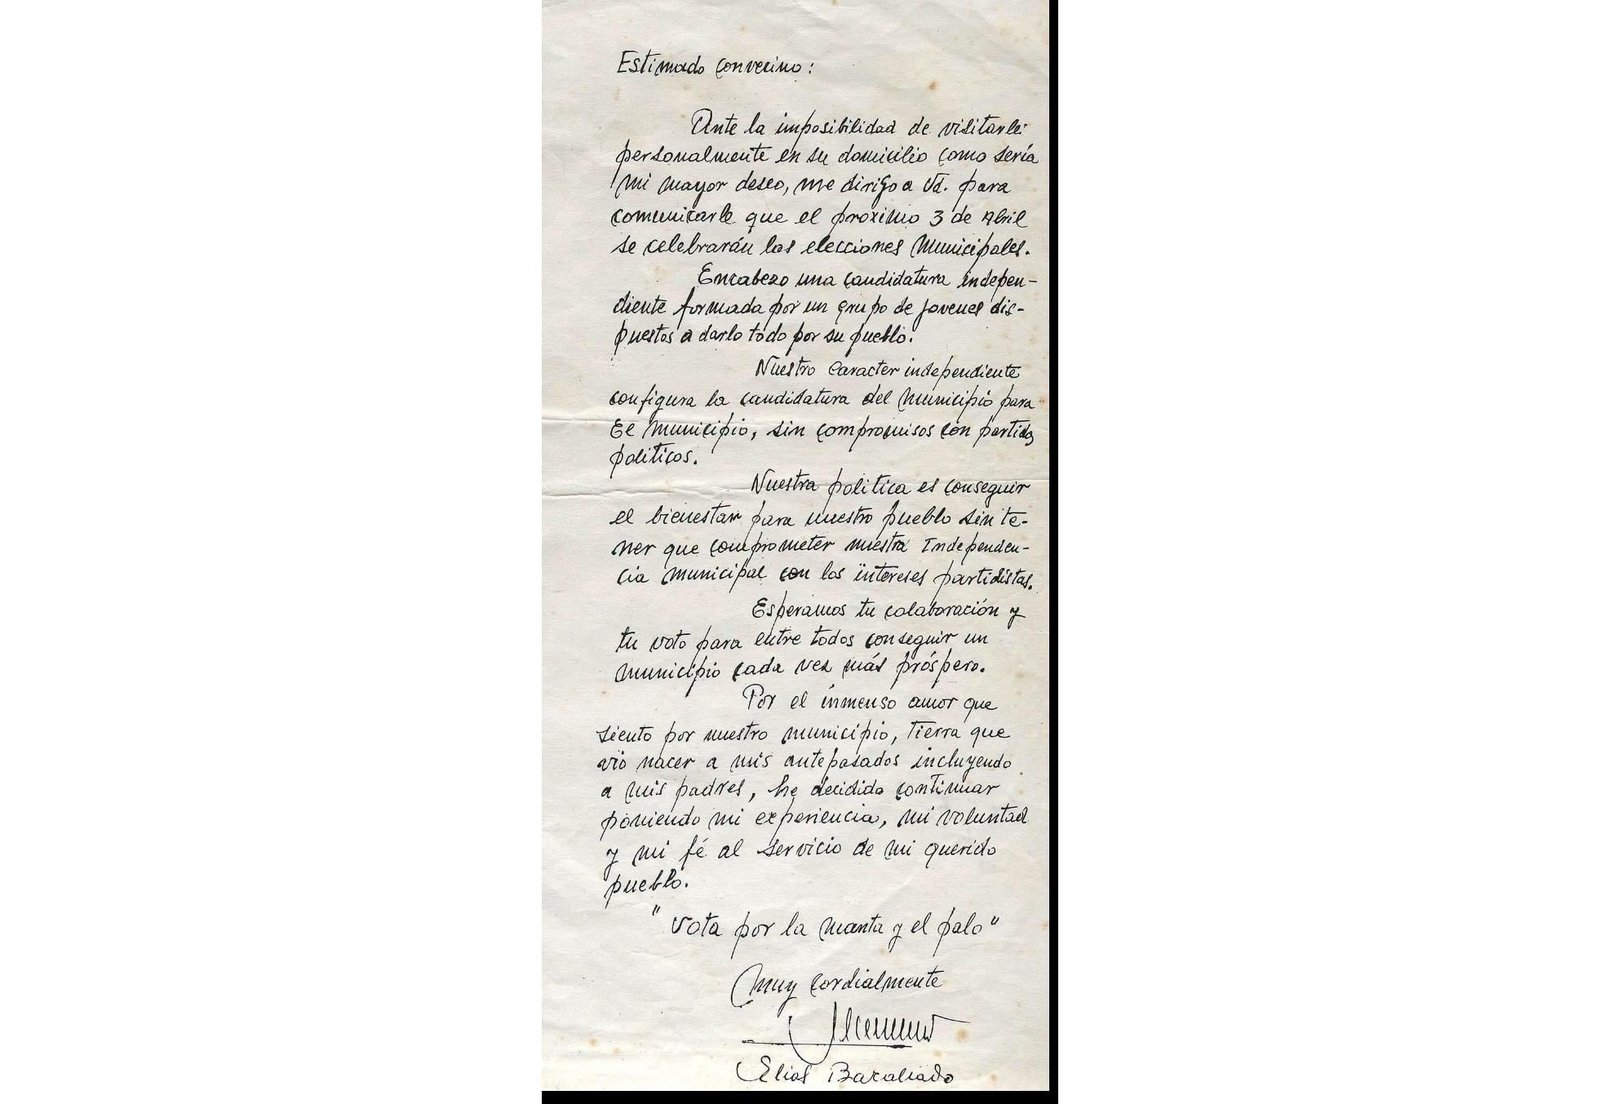 Estimado convecino:
Ante la imposibilidad de visitarle
personalmente en su domicilio como sería
mi mayor deseo, me dirijo a Vd. para
comunicarle que el próximo 3 de Abril
se celebrarán las elecciones Municipales.
Encabezo una candidatura indepen-
diente formada por un grupo de jovenes dis-
puestos a darlo todo por su pueblo.
Nuestro caracter independiente
configura la candidatura del Municipio para
el Municipio, sin compromisos con partidos
politicos.
Nuestra politica es conseguir
el bienestar para nuestro pueblo sin te-
ner que comprometer nuestra Independen-
cia Municipal con los intereses partidistas.
Esperamos tu colaboración y
tu voto para entre todos conseguir un
municipio cada vez más próspero.
Por el inmenso amor que
siento por nuestro municipio, Tierra que
vió nacer a mis antepasados incluyendo
a mis padres, he decidido continuar
poniendo mi experiencia, mi voluntad
y mi fé al servicio de mi querido
pueblo.
"Vota por la manta y el palo"
Muy cordialmente
Elias Bacallado